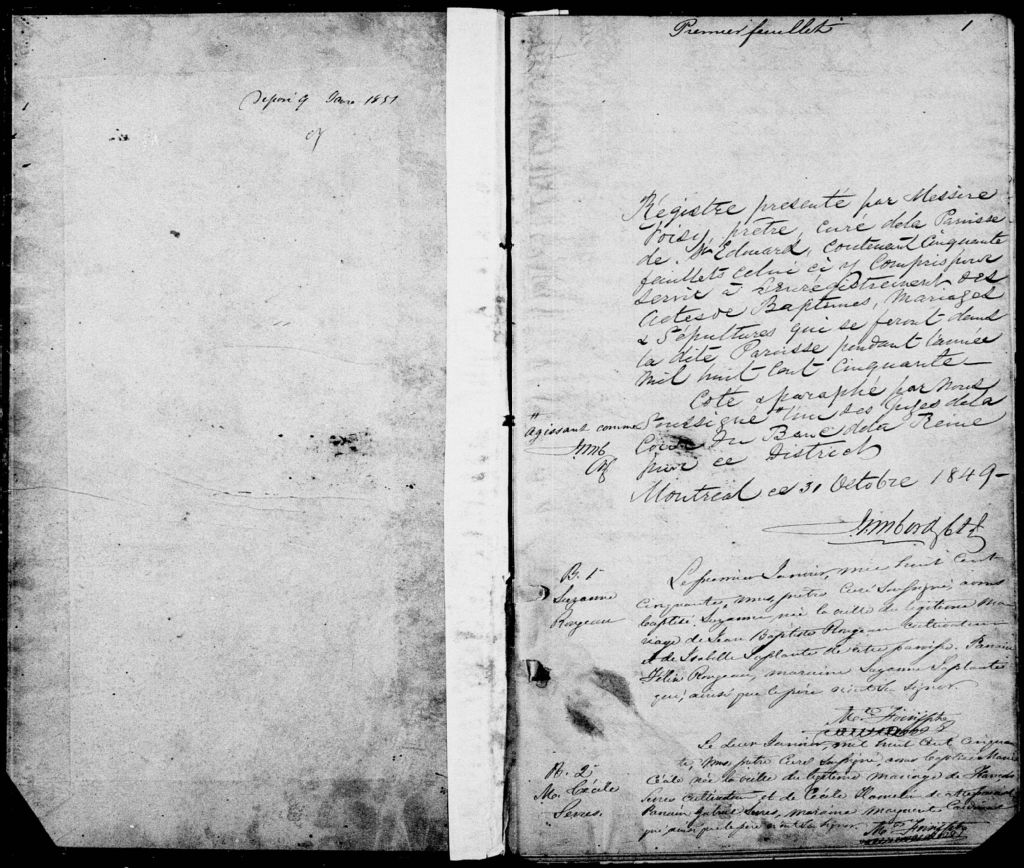 Déposé 9 Janv 1851
Premier feuillet
1
Régistre presenté par Messire
Voisy, prêtre, curé dela Paroisse
de St Edouard, contenant Cinquante
feuillets celui ci y Compris pour
servir à L'enrégistrement des
Actes de Baptêmes, Mariages
& Sépultures qui se feront dans
la dite Paroisse pendant l'année
Mil huit Cent Cinquante —
Coté & paraphé par Nous
Soussigné "l'un des Juges de la
"agissant comme
Cour Du Banc dela Reine
pour ce District
Montreal ce 31 Octobre 1849 —
B. 1
Suzanne
Rougeau
Le premier Janvier, mil huit Cent
Cinquante, nous prêtre Curé Soussigné avons
baptisé Suzanne, née la veille du légitime Ma-
riage de Jean Baptiste Rougeau Cultivateur
et de Isabelle Laplante de cette paroisse. Parrain
Félix Rougeau, marraine Suzanne Laplante
qui, ainsi que le père n'ont su signer.
B. 2
M. Cécile
Serres.
Le deux Janvier, mil huit Cent Cinquan-
te, Nous prêtre Curé Soussigné, avons baptisé Marie
Cécile née la veille du légitime mariage de
Serres Cultivateur et de Cécile Hamelin de cette paroisse
Parrain Serres, marraine Marguerite
qui ainsi que le père n'ont su signer.